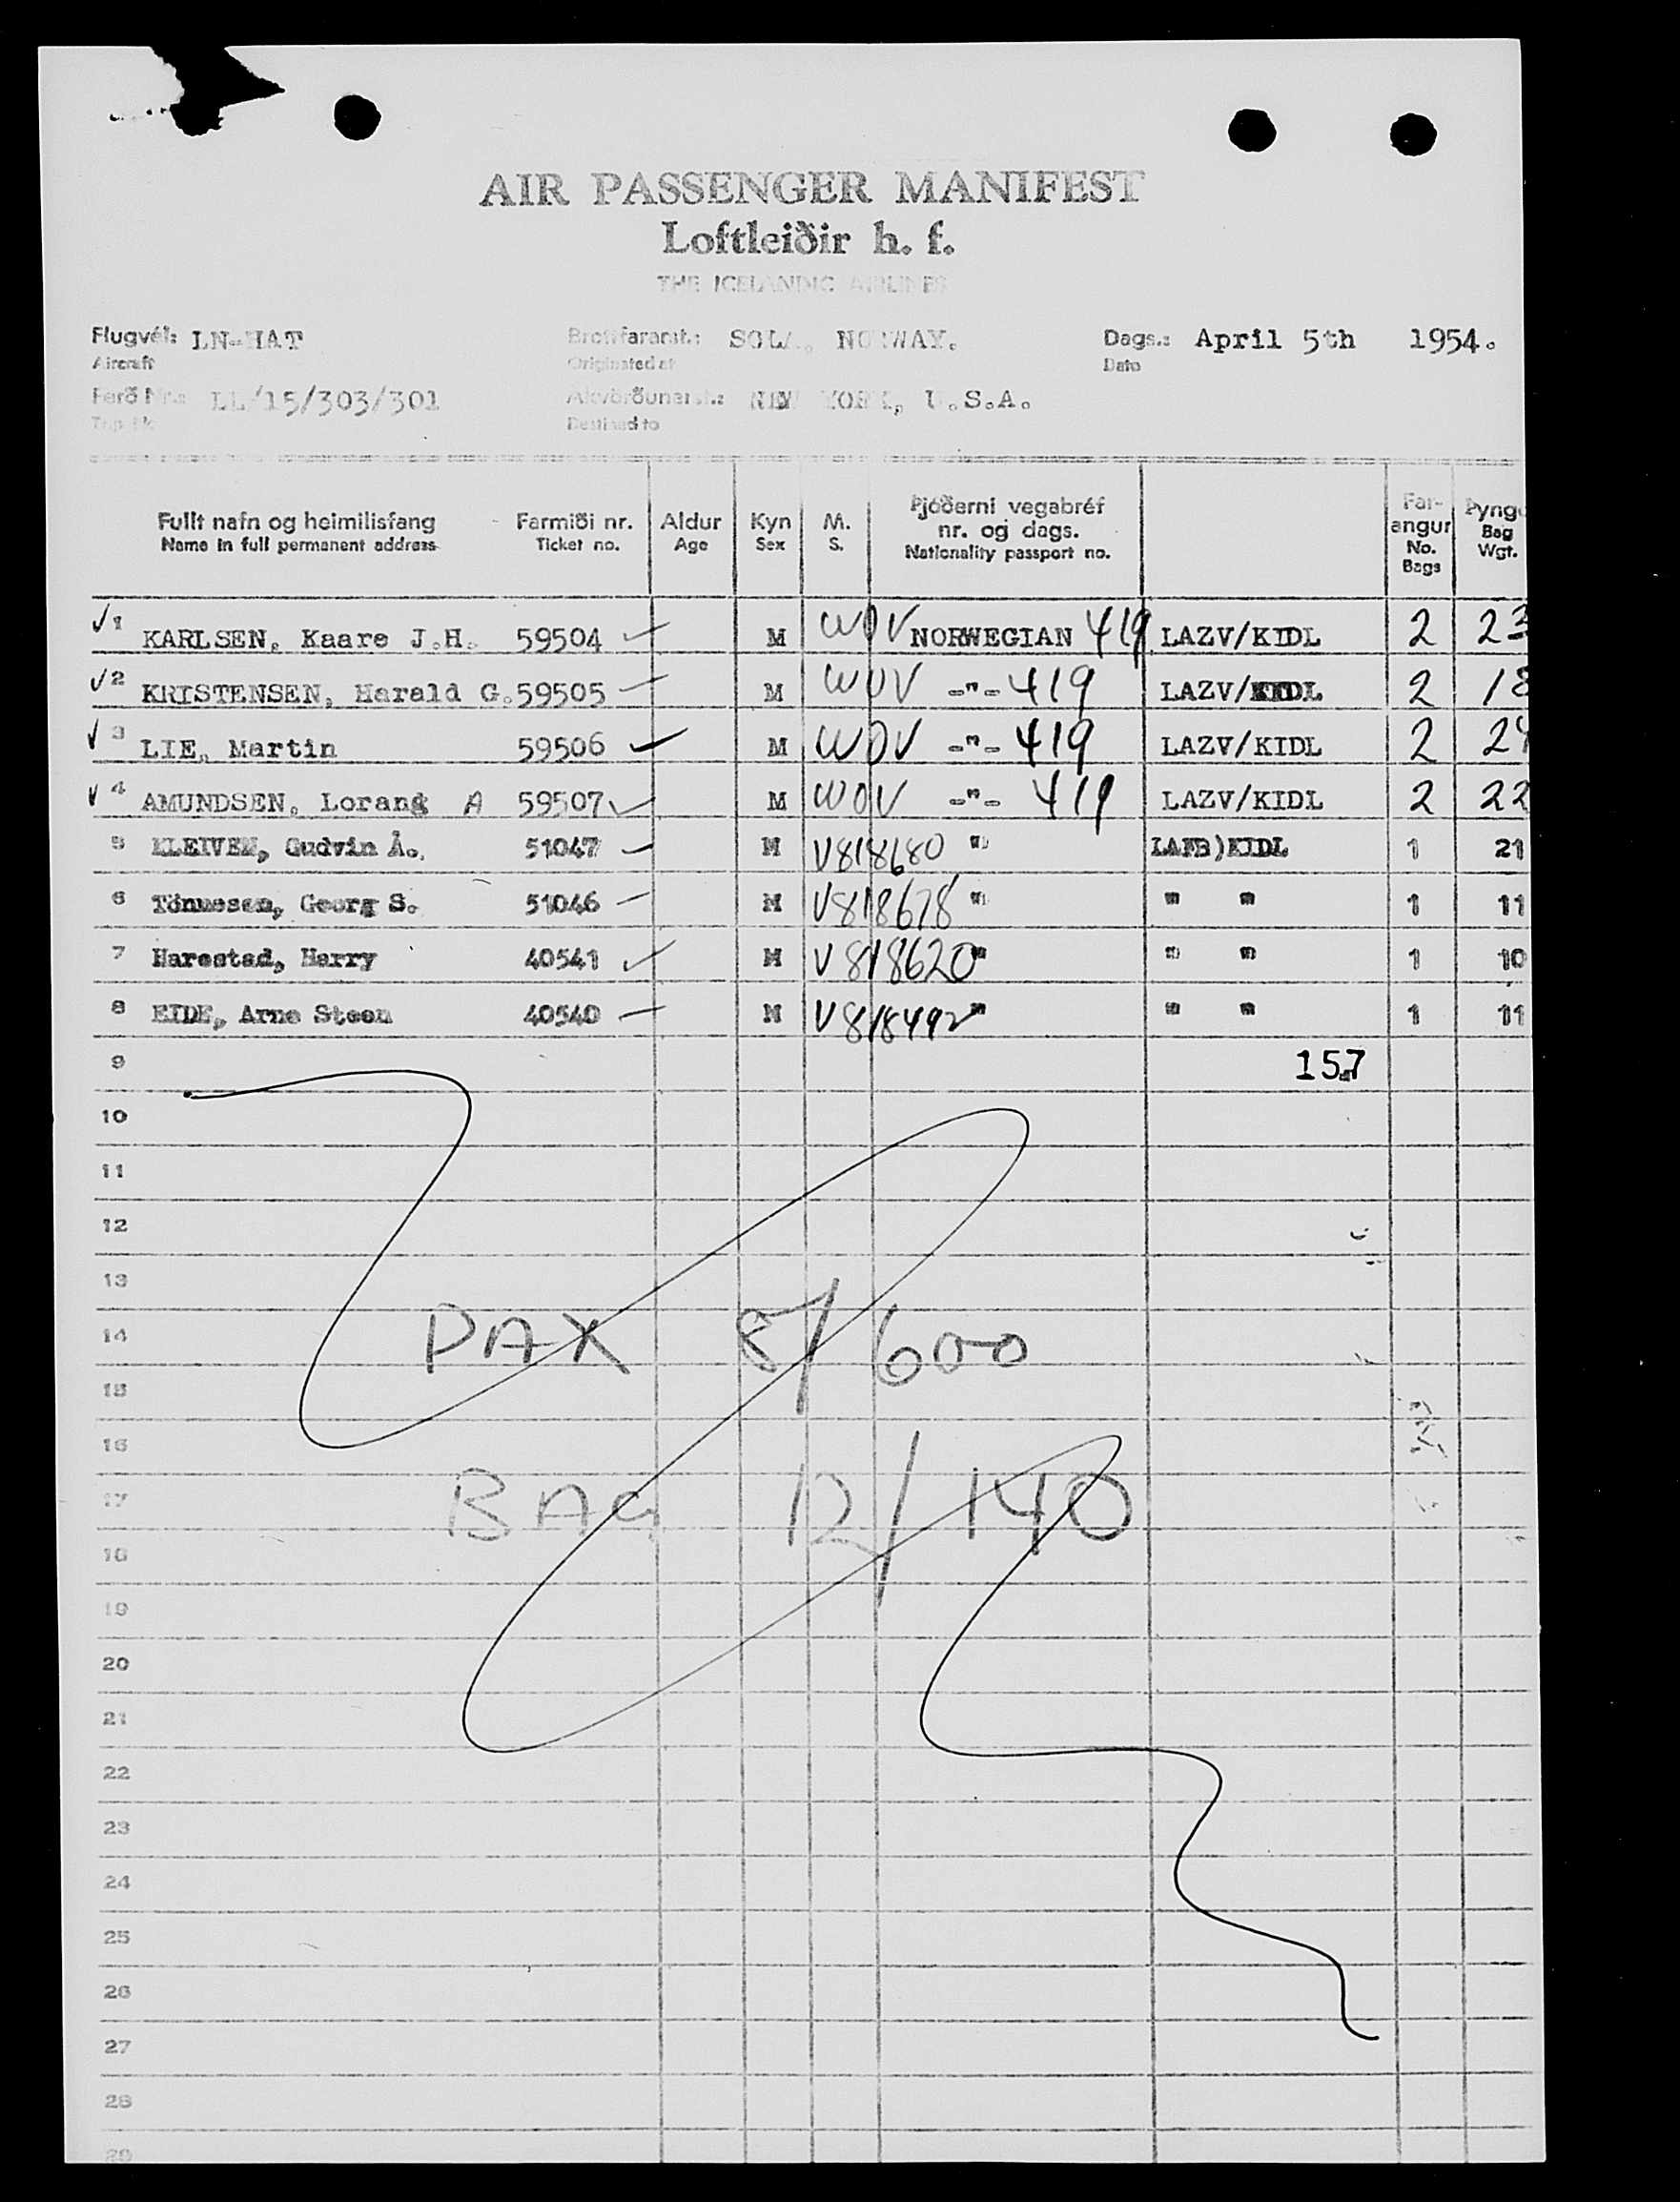 AIR PASSENGER MANIFEST
Loftleiðir h. f.
THE ICELANDIC AIRLINES
Flugvél: LN-HAT Brottfararst.: SOLA, NORWAY. Dags.: April 5th 1954.
Aircraft Originated at Date
Ferð Nr.: LL/15/303/301 Ákvörðunarst.: NEW YORK, U.S.A.
Trip No. Destined to
Fullt nafn og heimilisfang Farmiði nr. Aldur Kyn M. Þjóðerni vegabréf nr. og dags. Far-angur Þyngd
Name in full permanent address Ticket no. Age Sex S. Nationality passport no. No. Bags Bag Wgt.
√ 1 KARLSEN, Kaare J.H. 59504 M WOV NORWEGIAN 419 LAZV/KIDL 2 23
√ 2 KRISTENSEN, Harald G. 59505 M WOV -"- 419 LAZV/KIDL 2 18
√ 3 LIE, Martin 59506 M WOV -"- 419 LAZV/KIDL 2 24
√ 4 AMUNDSEN, Lorang A 59507 M WOV -"- 419 LAZV/KIDL 2 22
5 KLEIVEN, Gudvin Å. 51047 M V818680 " LAFB)KIDL 1 21
6 Tönnesen, Georg S. 51046 M V818678 " " " 1 11
7 Harestad, Harry 40541 M V818620 " " " 1 10
8 EIDE, Arne Steen 40540 M V818492 " " " 1 11
9 157
10
11
12
13
14 PAX 8/600
15
16
17 BAG 12/140
18
19
20
21
22
23
24
25
26
27
28
29